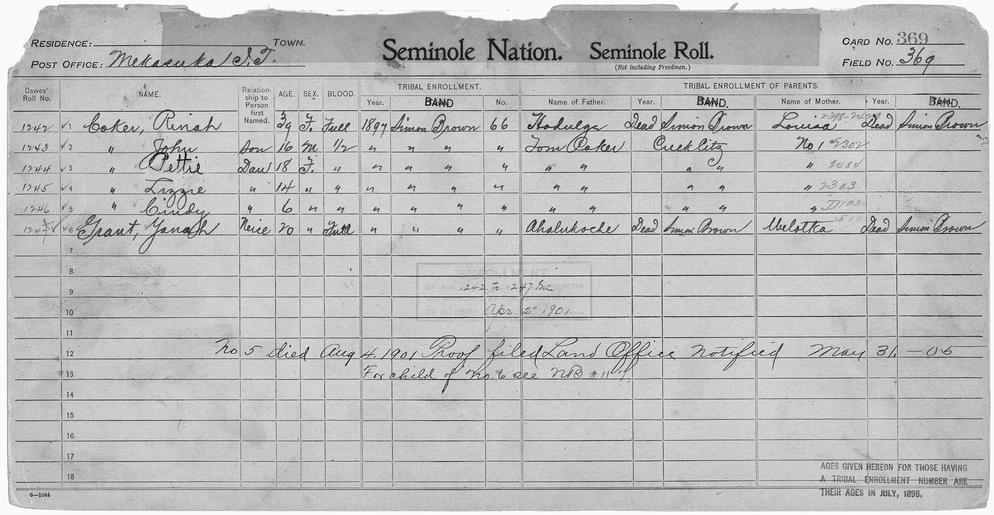 RESIDENCE: TOWN. Seminole Nation. Seminole Roll. CARD NO. 369
POST OFFICE: Mekasuka I.T. (Not including Freedmen.) FIELD NO. 369
Dawes' Roll No. NAME. Relationship to Person first Named. AGE. SEX. BLOOD. TRIBAL ENROLLMENT. TRIBAL ENROLLMENT OF PARENTS.
Year. BAND. No. Name of Father. Year. BAND. Name of Mother. Year. BAND.
1242 √ 1 Coker, Rinah 39 F. Full 1897 Simon Brown 66 Hodulga Dead Simon Brown Louisa Dead Simon Brown
1243 √ 2 " John son 16 M 1/2 " " " " Tom Coker Creek Citz No 1 2302
1244 √ 3 " Pettie Dau 18 F. " " " " " " " " " " 2484
1245 √ 4 " Lizzie " 14 " " " " " " " " " " " 2303
1246 √ 5 " Cindy " 6 " " " " " " " " " " "
1247 √ 6 Grant, Yanah Neice 20 " Full " " " " Ahalukoche Dead Simon Brown Melotka Dead Simon Brown
7
8
ENROLLMENT
9 1242 to 1247 Inc.
10 Apr. 2" 1901
11
12 No 5 died Aug 4. 1901 Proof filed Land Office Notified May 31 - 05
13 For child of No. 6 see NB #11
14
15
16
17
18
AGES GIVEN HEREON FOR THOSE HAVING
A TRIBAL ENROLLMENT NUMBER ARE
THEIR AGES IN JULY, 1898.
6—1044